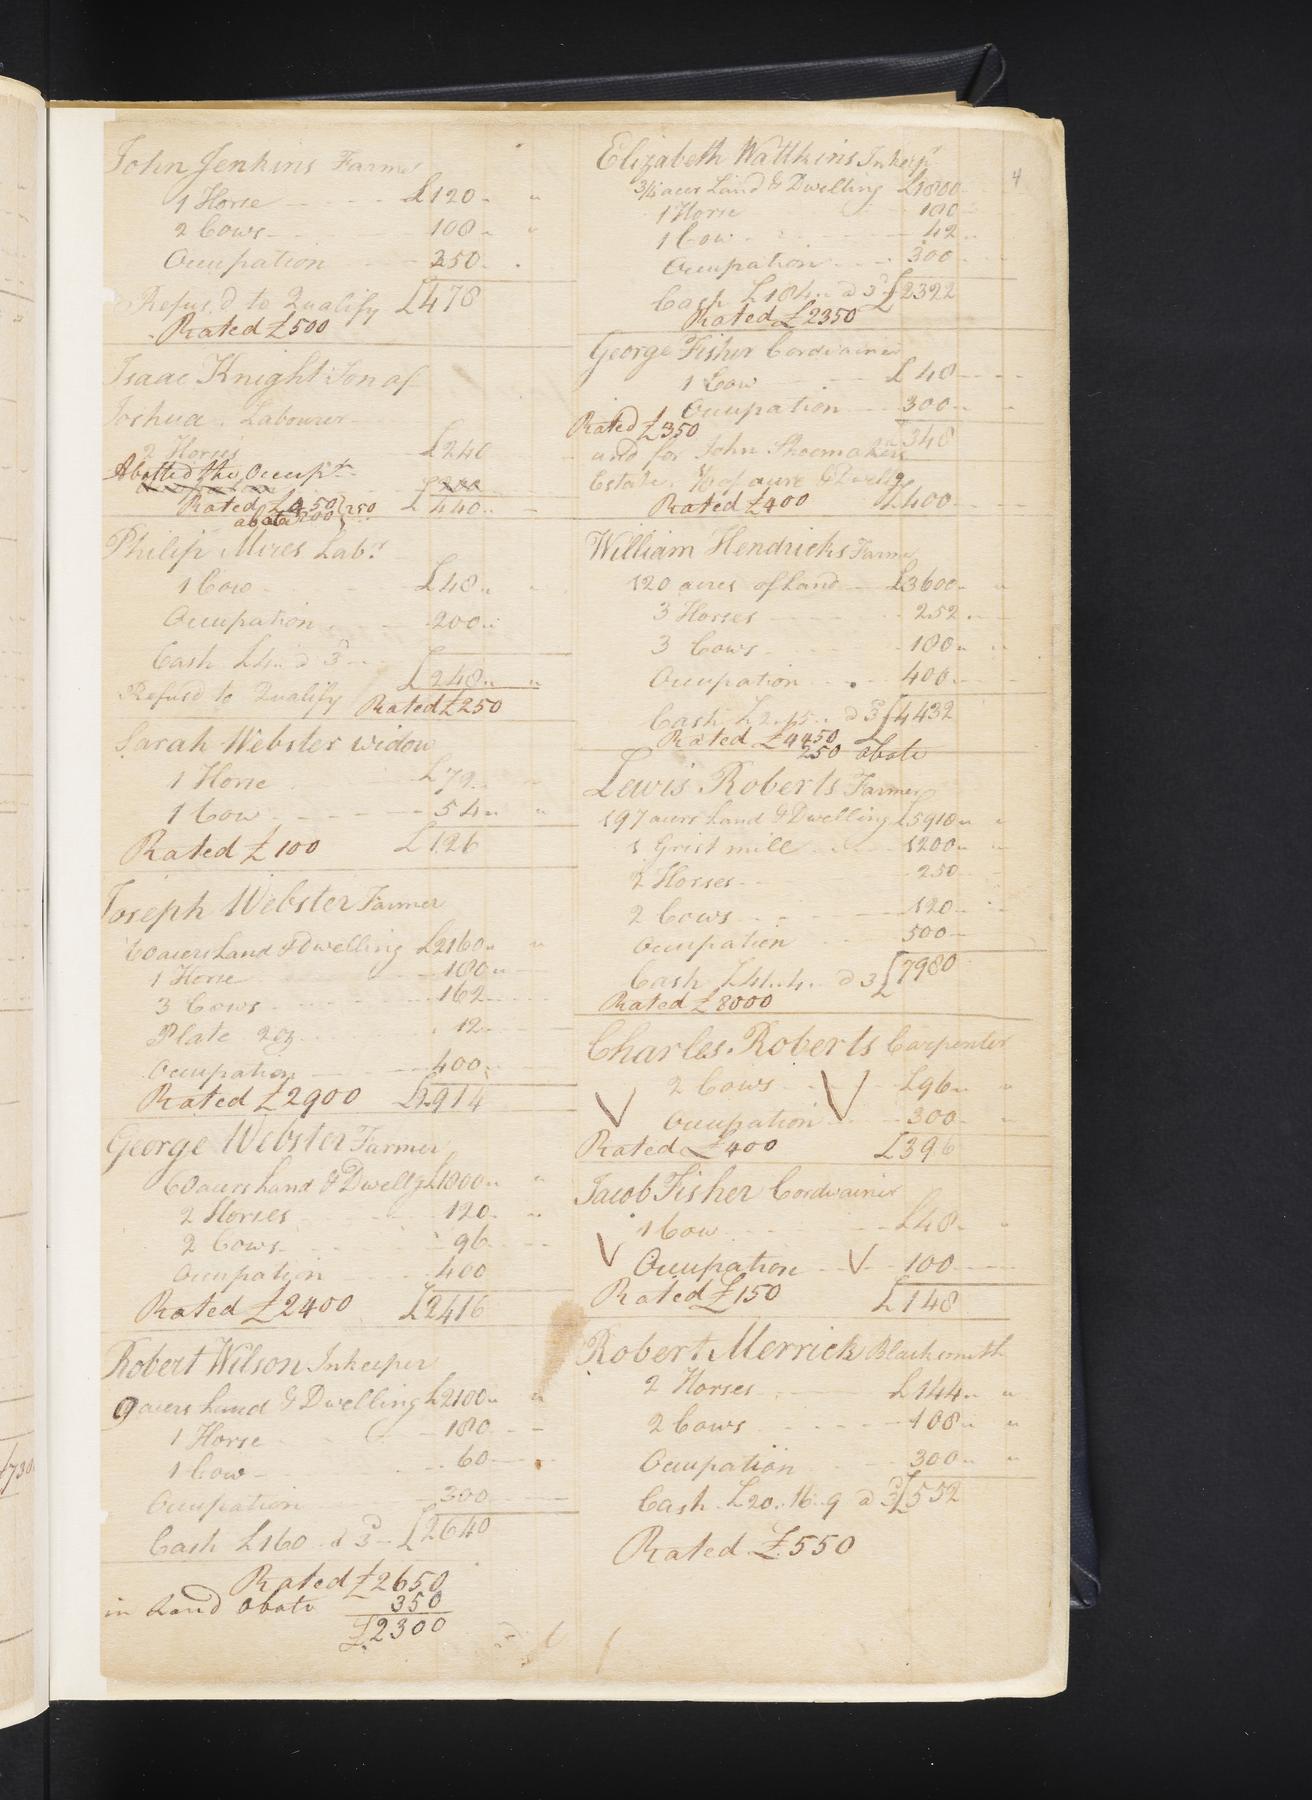 John Jenkins Farmer
1 Horse £120
2 Cows 108
Occupation 250
Refus.d to Qualify £478
Rated £500
Isaac Knight Son of
Joshua Labourer
2 Horses £240
Abatted the Occupn
200
Rated £450 250 £440
abate 200
Philip Mires Labr
1 Cow £48
Occupation 200
Cash £4 a 3d
£248
Refusd to Qualify Rated £250
Sarah Webster widow
1 Horse £72
1 Cow 54
Rated £100 £126
Joseph Webster Farmer
60 acers Land & Dwelling £2160
1 Horse 180
3 Cows 162
Plate 2oz 12
Occupation 400
Rated £2900 £2914
George Webster Farmer
60 acers Land & Dwellg £1800
2 Horses 120
2 Cows 96
Occupation 400
Rated £2400 £2416
Robert Wilson Inkeeper
9 acers Land & Dwelling £2100
1 Horse 180
1 Cow 60
Occupation 300
Cash £160 a 3d £2640
Rated £2650
in Land abate 350
£2300
4
Elizabeth Wattkins Inkepr
3/4 acer Land & Dwelling £1800
1 Horse 180
1 Cow 42
Occupation 300
Cash £184 a 3d £2322
Rated £2350
George Fisher Cordwainer
1 Cow £48
Occupation 300
Rated £350
348
and for John Shoemakers
Estate of acure & Dwellg
Rated £400 £400
William Hendricks Farmer
120 acres of Land £3600
3 Horses 252
3 Cows 180
Occupation 400
Cash £2.15 a 3d £4432
Rated £4450
250 abate
Lewis Roberts Farmer
197 acers Land & Dwelling £5910
1 Grist mill 1200
2 Horses 250
2 Cows 120
Occupation 500
Cash £41..4 a 3 £7980
Rated £8000
Charles Roberts Carpenter
2 Cows £96
Occupation 300
Rated £400 £396
Jacob Fisher Cordwainer
1 Cow £48
Occupation 100
Rated £150 £148
Robert Merrick Blacksmith
2 Horses £144
2 Cows 108
Occupation 300
Cash £20..16..9 a 3d £552
Rated £550